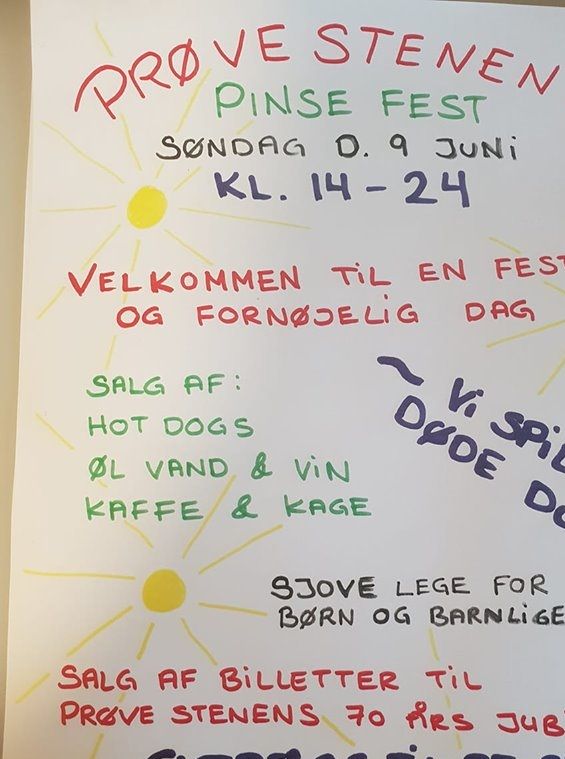 PRØVE STENEN
PINSE FEST
SØNDAG D. 9 JUNI
KL. 14 - 24
VELKOMMEN TIL EN FEST
OG FORNØJELIG DAG
SALG AF:
HOT DOGS
ØL VAND & VIN
KAFFE & KAGE
~ Vi SPIL
DØDE DO
SJOVE LEGE FOR
BØRN OG BARNLIGE
SALG AF BILLETTER TIL
PRØVE STENENS 70 ÅRS JUB